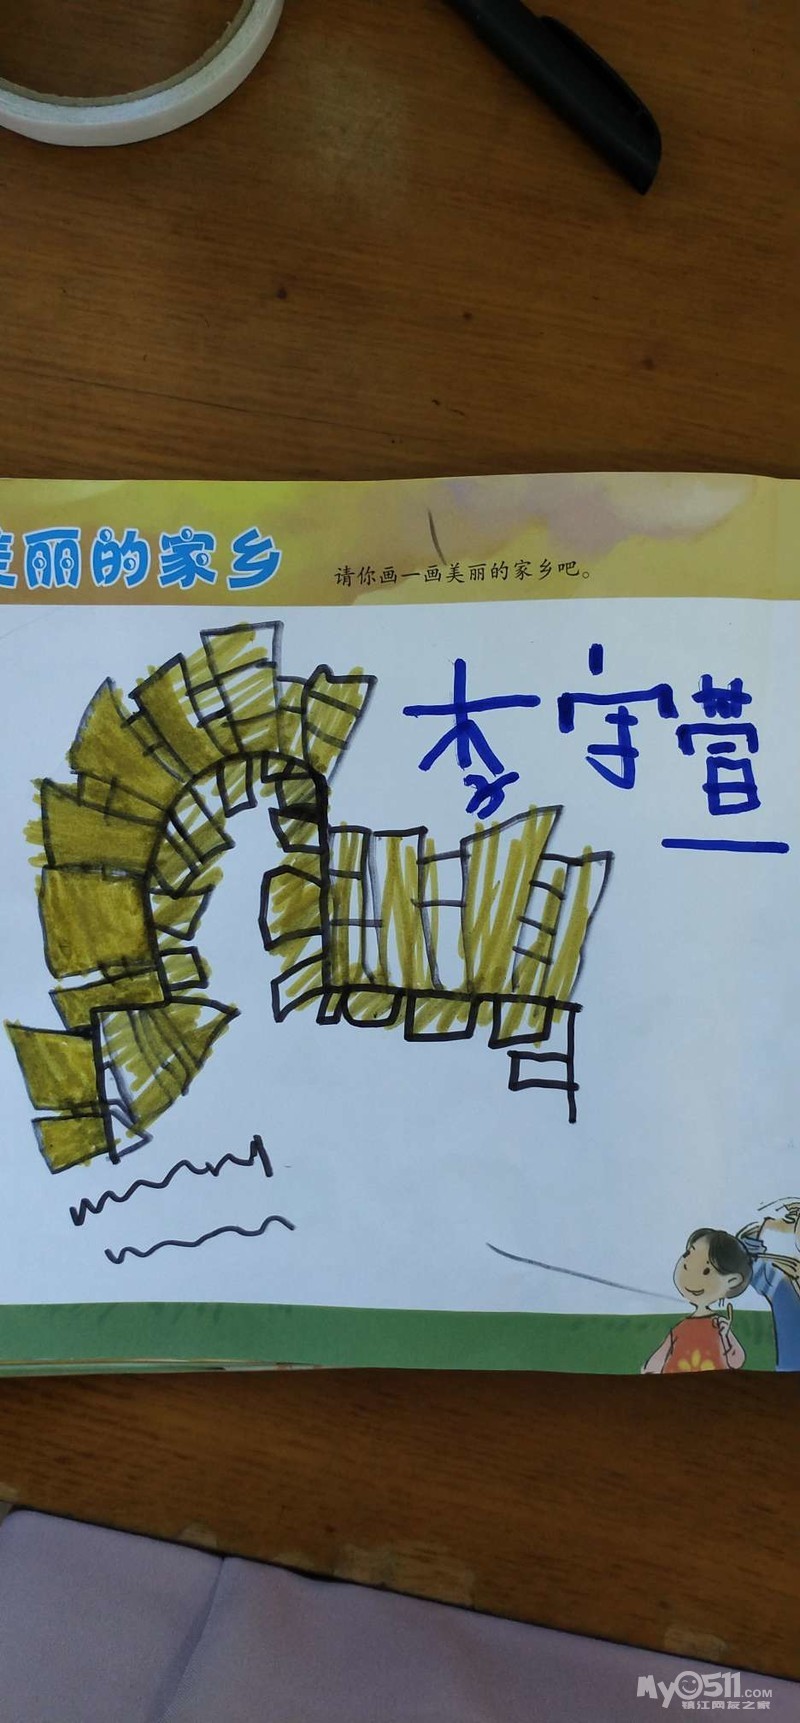 美丽的家乡
请你画一画美丽的家乡吧。
李守营
My0511.COM
镇江网友之家